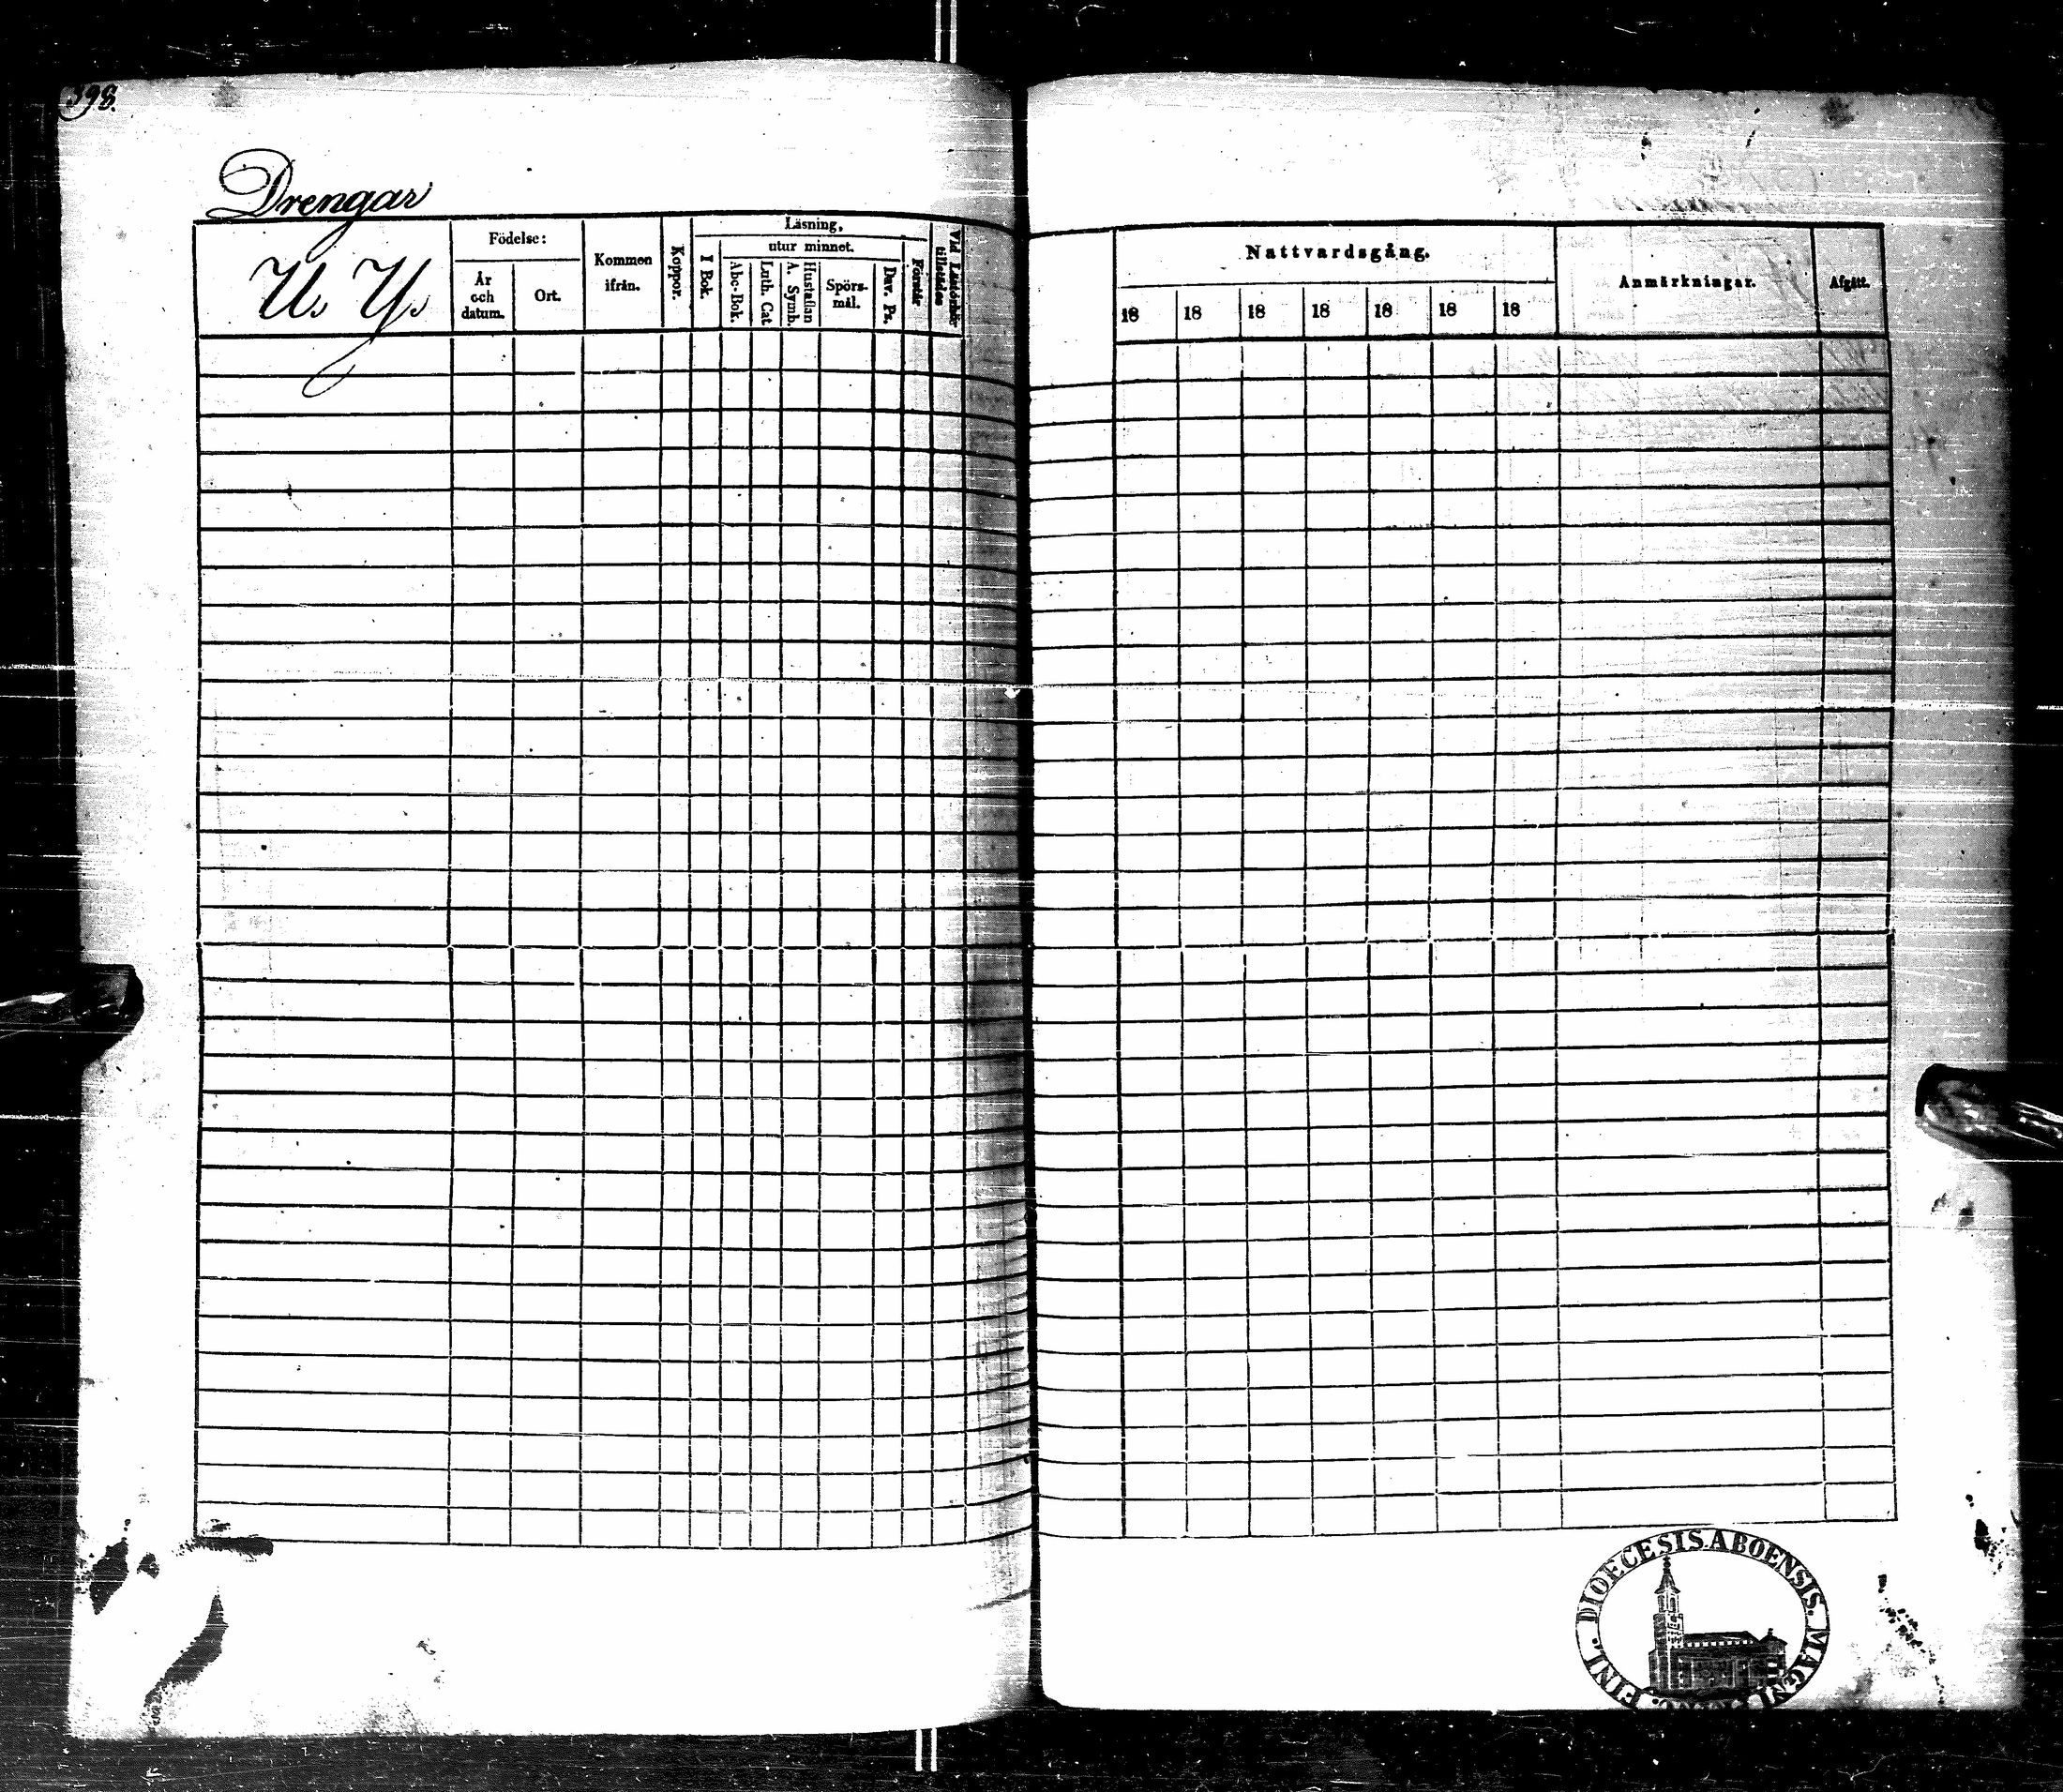 398.
Drengar
U. Y.
Födelse:
År och datum.
Ort.
Kommen ifrån.
Koppor.
Läsning,
I Bok.
utur minnet.
Abc-Bok.
Luth. Cat
Hustaflan A. Symb.
Spörsmål.
Dav. Ps.
Förstår
Vid Läsförhör tillstädes
Nattvardsgång.
18 18 18 18 18 18 18
Anmärkningar.
Afgått.
DIOECESIS.ABOENSIS. MAGNI FINL.